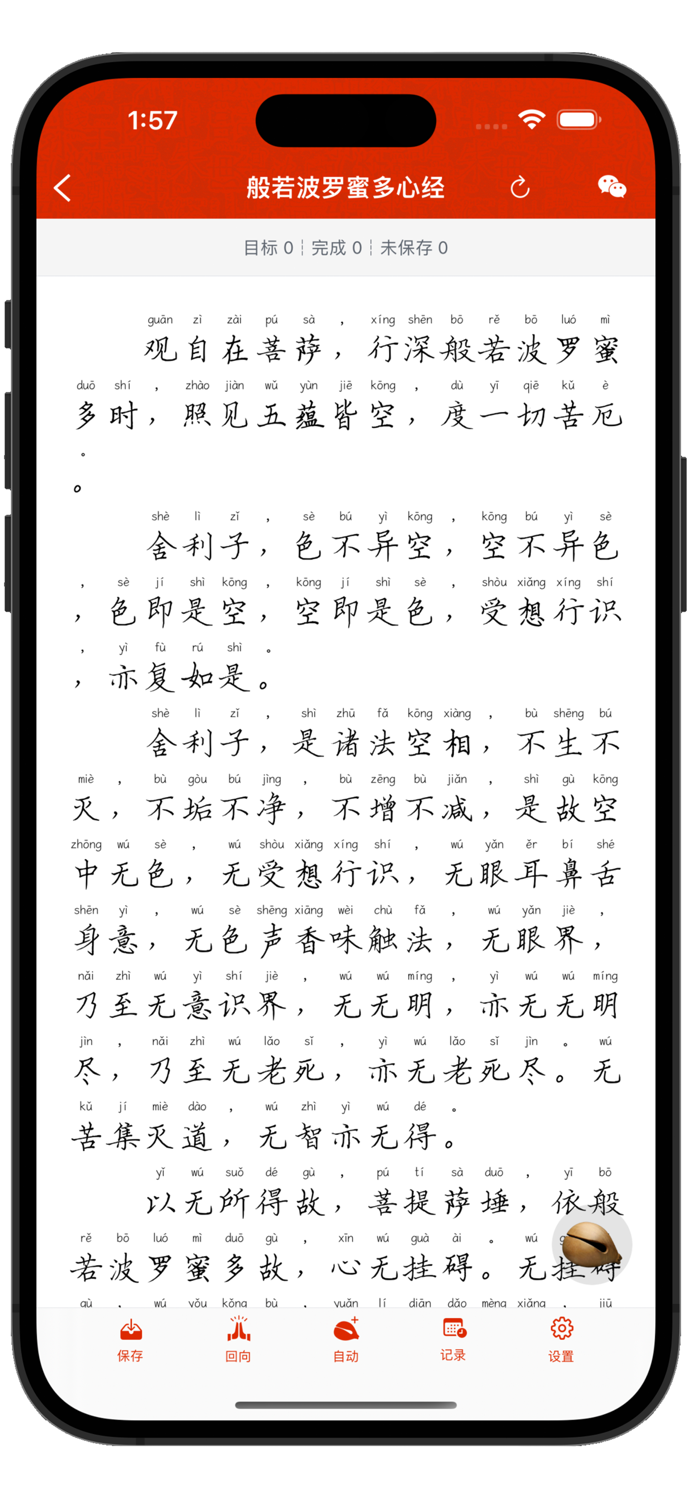 1:57
般若波罗蜜多心经
目标 0 ¦ 完成 0 ¦ 未保存 0
guān zì zài pú sà , xíng shēn bō rě bō luó mì
观自在菩萨，行深般若波罗蜜
duō shí , zhào jiàn wǔ yùn jiē kōng , dù yī qiē kǔ è
多时，照见五蕴皆空，度一切苦厄
。
。
shè lì zǐ , sè bú yì kōng , kōng bú yì sè
舍利子，色不异空，空不异色
, sè jí shì kōng , kōng jí shì sè , shòu xiǎng xíng shí
，色即是空，空即是色，受想行识
, yì fù rú shì 。
，亦复如是。
shè lì zǐ , shì zhū fǎ kōng xiàng , bù shēng bú
舍利子，是诸法空相，不生不
miè , bù gòu bú jìng , bù zēng bù jiǎn , shì gù kōng
灭，不垢不净，不增不减，是故空
zhōng wú sè , wú shòu xiǎng xíng shí , wú yǎn ěr bí shé
中无色，无受想行识，无眼耳鼻舌
shēn yì , wú sè shēng xiāng wèi chù fǎ , wú yǎn jiè ,
身意，无色声香味触法，无眼界，
nǎi zhì wú yì shí jiè , wú wú míng , yì wú wú míng
乃至无意识界，无无明，亦无无明
jìn , nǎi zhì wú lǎo sǐ , yì wú lǎo sǐ jìn 。 wú
尽，乃至无老死，亦无老死尽。无
kǔ jí miè dào , wú zhì yì wú dé 。
苦集灭道，无智亦无得。
yǐ wú suǒ dé gù , pú tí sà duǒ , yī bō
以无所得故，菩提萨埵，依般
rě bō luó mì duō gù , xīn wú guà ài 。 wú
若波罗蜜多故，心无挂碍。无挂碍
gù , wú yǒu kǒng bù , yuǎn lí diān dǎo mèng xiǎng , jiū
保存 回向 自动 记录 设置